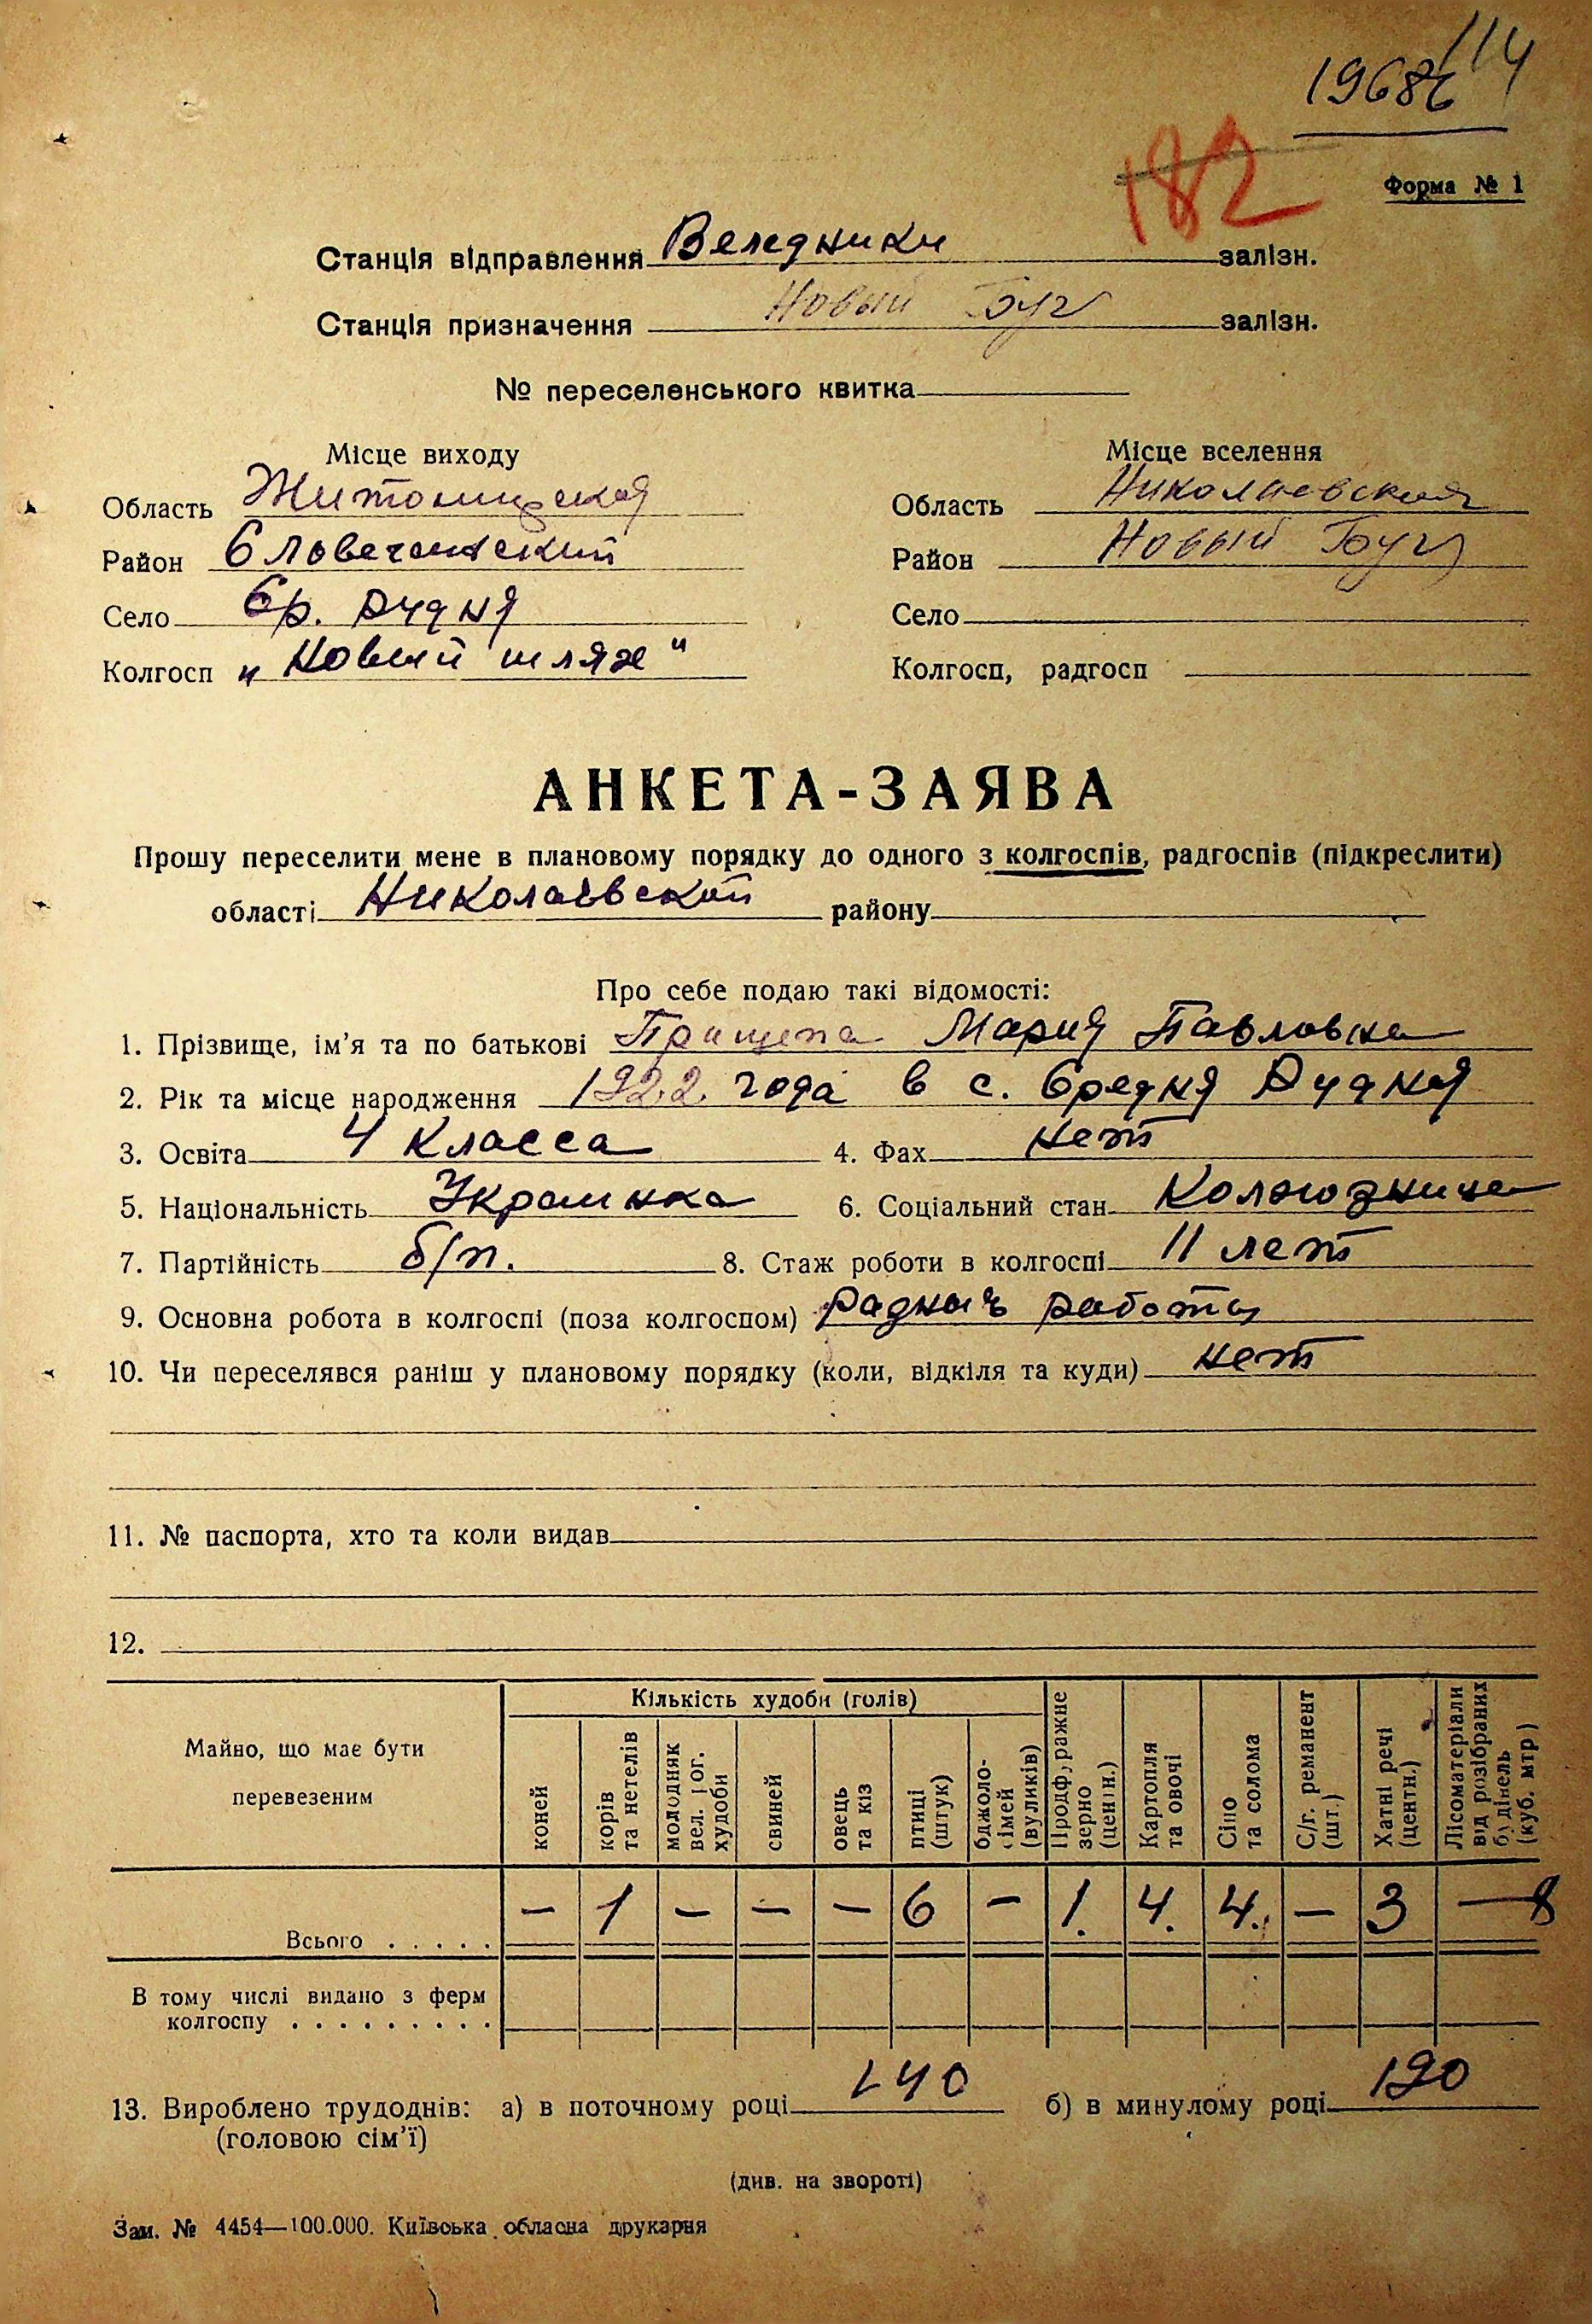 114
1968
182
Форма № 1
Станція відправлення Веледники залізн.
Станція призначення Новый Буг залізн.
№ переселенського квитка
Місце виходу
Область Житомирская
Район Словечанский
Село Ср. Рудня
Колгосп „Новый шлях"
Місце вселення
Область Николаевская
Район Новый Буг
Село
Колгосп, радгосп
АНКЕТА-ЗАЯВА
Прошу переселити мене в плановому порядку до одного з колгоспів, радгоспів (підкреслити)
області Николаевской району
Про себе подаю такі відомості:
1. Прізвище, ім'я та по батькові Прищепа Мария Павловна
2. Рік та місце народження 1922 года в с. Средня Рудня
3. Освіта 4 класса 4. Фах нет
5. Національність Украинка 6. Соціальний стан Колхозница
7. Партійність б/п. 8. Стаж роботи в колгоспі 11 лет
9. Основна робота в колгоспі (поза колгоспом) работы
10. Чи переселявся раніш у плановому порядку (коли, відкіля та куди) нет
11. № паспорта, хто та коли видав
12.
Майно, що має бути перевезеним
Кількість худоби (голів)
коней
корів та нетелів
молодняк вел. рог. худоби
свиней
овець та кіз
птиці (штук)
бджоло-сімей (вуликів)
Продф,ражне зерно (центн.)
Картопля та овочі
Сіно та солома
С/г. реманент (шт.)
Хатні речі (центн.)
Лісоматеріали від розібраних будівель (куб. мтр)
Всього . . . . . — 1 — — — 6 — 1. 4. 4. — 3 — 8
В тому числі видано з ферм
колгоспу . . . . . . . . .
13. Вироблено трудоднів: а) в поточному році 140 б) в минулому році 190
(головою сім'ї)
(див. на звороті)
Зам. № 4454—100.000. Київська обласна друкарня